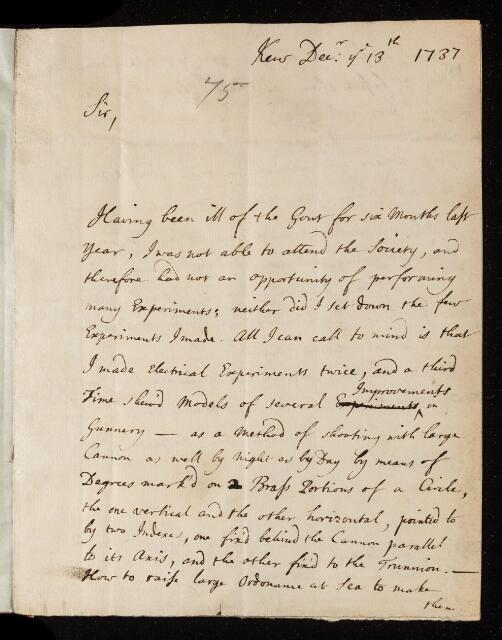 Kew Decr: ye 13th 1737
75
Sir,
Having been ill of the Gout for six Months last
Year, I was not able to attend the Society, and
therefore had not an opportunity of performing
many Experiments; neither did I set down the few
Experiments I made. All I can call to mind is that
I made Electrical Experiments twice, and a third
Improvements
Time shew'd Models of several Experiments in
Gunnery — as a Method of shooting with large
Cannon as well by Night as by Day by means of
Degrees mark'd on 2 Brass Portions of a Circle,
the one vertical and the other horizontal, pointed to
by two Indexes, one fix'd behind the Cannon parallel
to its Axis, and the other fix'd to the Trunnion. —
How to raise large Ordonance at Sea to make
them